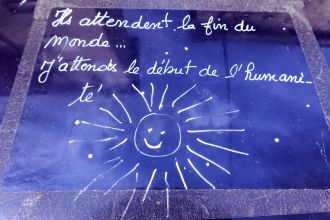 Ils attendent la fin du
monde...
J'attends le début de l'humani_
té